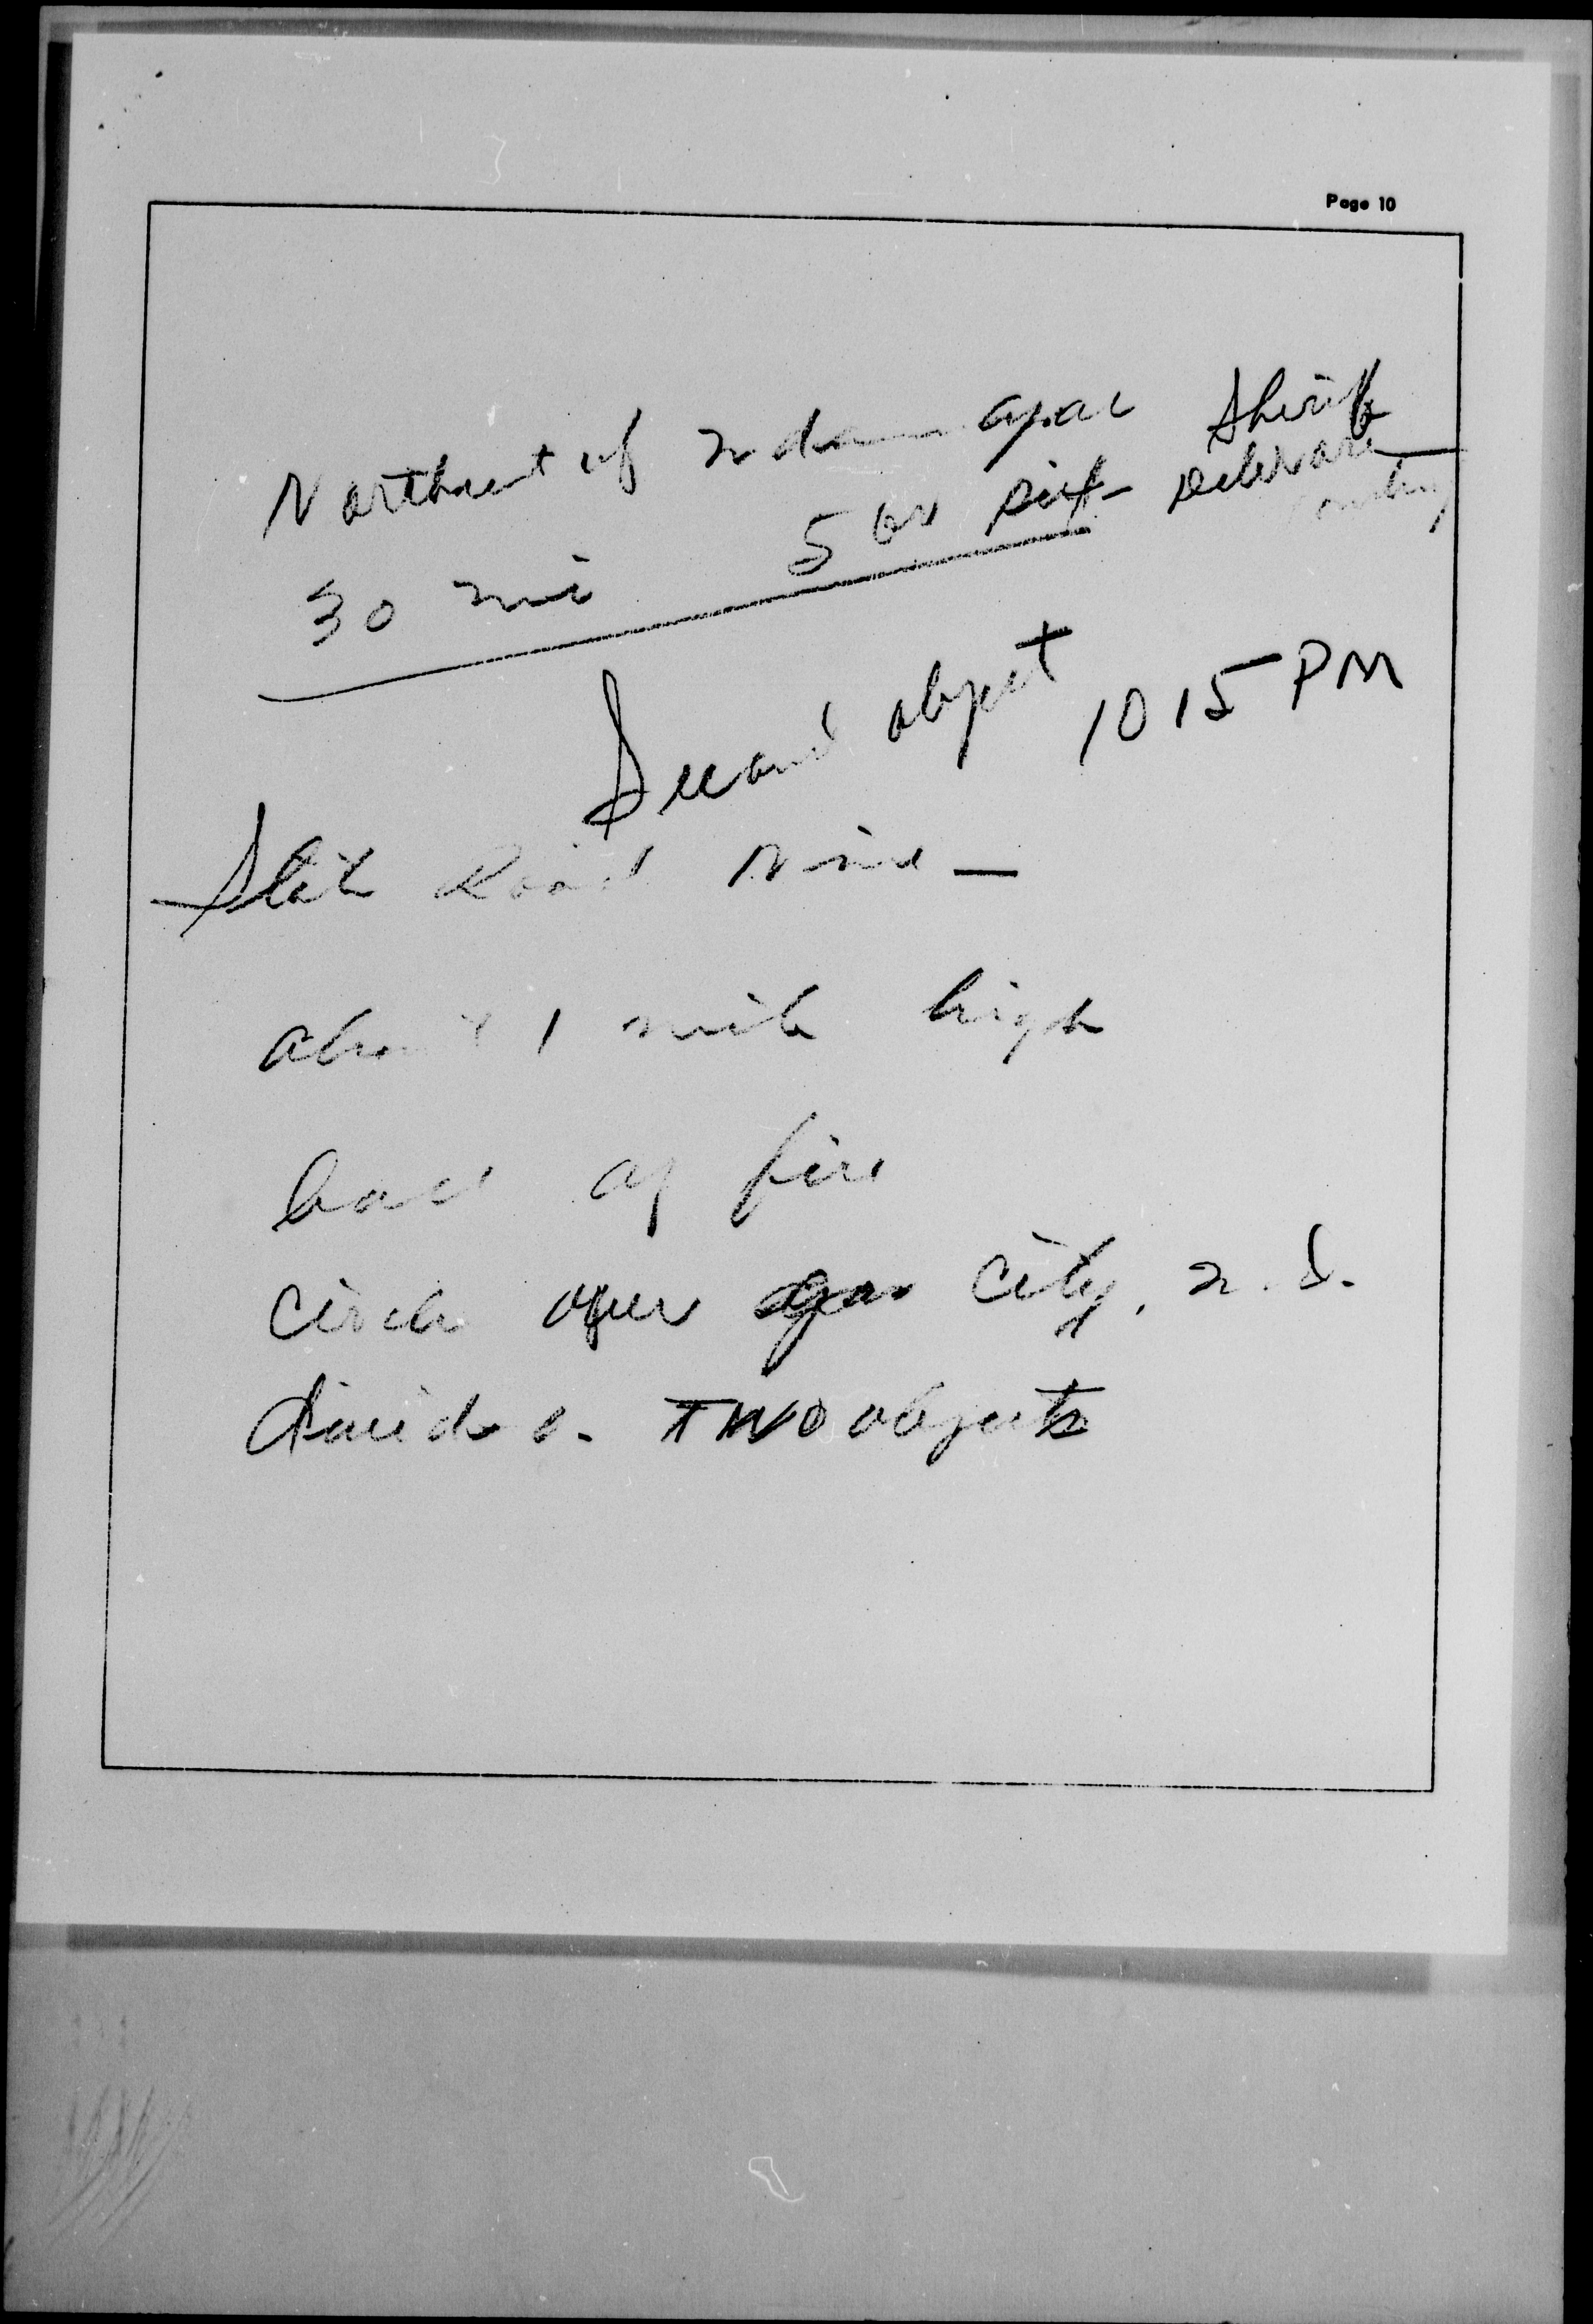 Page 10
Northeast of Indianapolis Sheriff
30 mi 5 or six - Delaware County
Second object 10 15 PM
State Road Nine -
about 1 mile high
ball of fire
circle over gas City, n. d.
divides. TWO objects